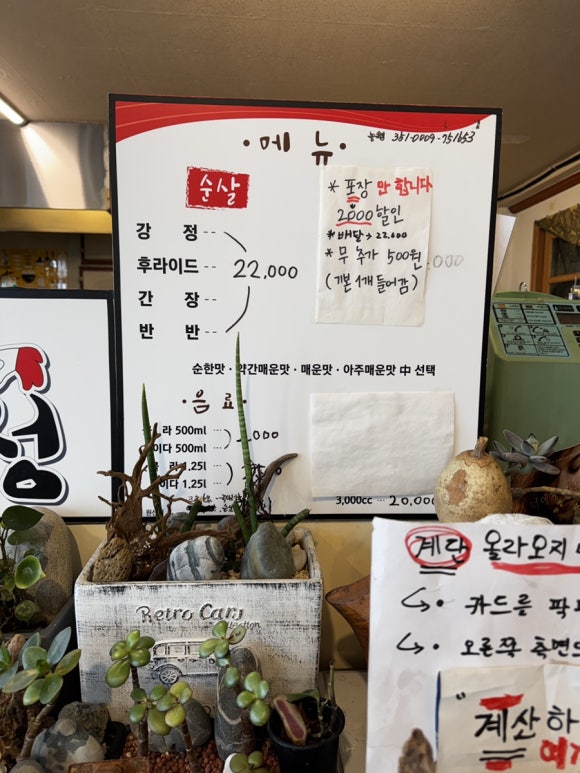 ·메뉴·
농협 351-0009-751653
순살
강 정
후라이드
22,000
간 장
반 반
* 포장 만 합니다
2000할인
* 배달 → 22,000
* 무 추가 500원
(기본 1개 들어감)
순한맛 · 약간매운맛 · 매운맛 · 아주매운맛 中 선택
·음료·
라 500ml
이다 500ml
라 1.25l
이다 1.25l
3,000cc ··· 20,000
Retro Car
계단 올라오지
카드를
오른쪽 측면
계산하